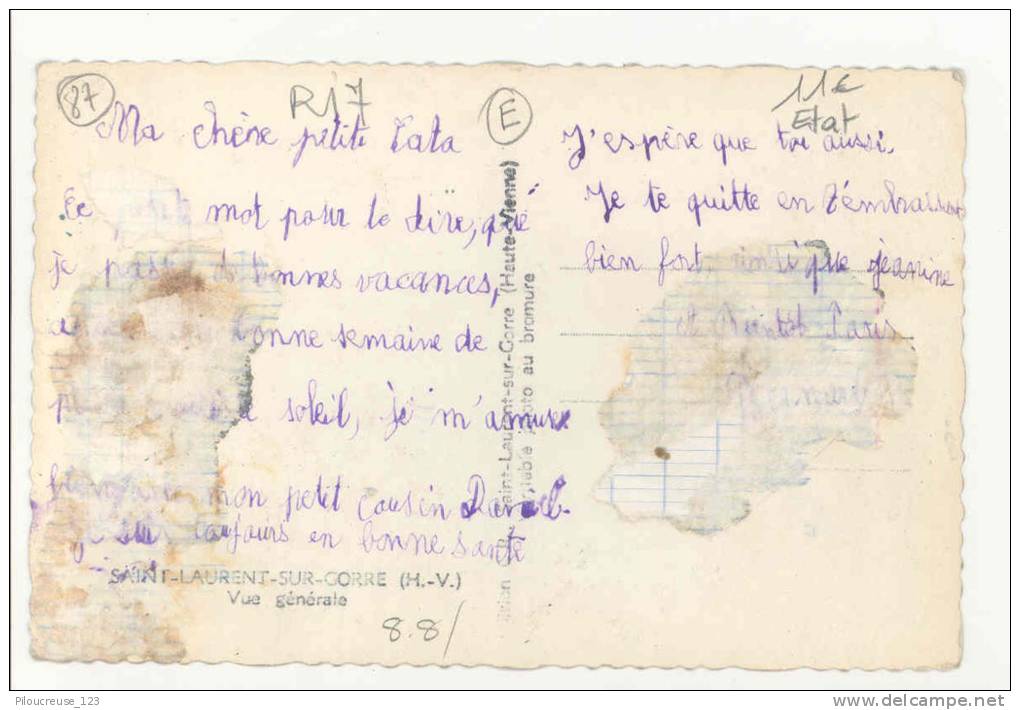 87
R17
E
11€
Etat
Ma chère petite Tata
Ce mot pour le dire, que
je passe de bonnes vacances,
bonne semaine de
soleil, je m'amuse
bien avec mon petit cousin
Je suis toujours en bonne santé
J'espère que toi aussi.
Je te quitte en t'embrassant
bien fort, ainsi que Jeanine
Paris
Saint-Laurent-sur-Gorre (Haute-Vienne)
Véritable photo au bromure
SAINT-LAURENT-SUR-GORRE (H.-V.)
Vue générale
8.8/
Piloucreuse_123
www.delcampe.net